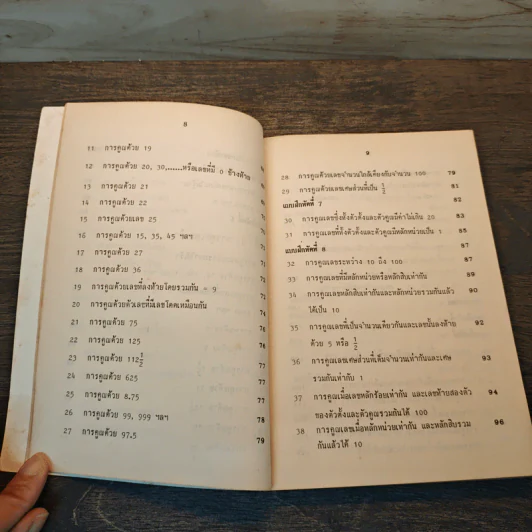 8
11 การคูณด้วย 19
12 การคูณด้วย 20, 30,......หรือเลขที่มี 0 ข้างท้าย
13 การคูณด้วย 21
14 การคูณด้วย 22
15 การคูณด้วยเลข 25
16 การคูณด้วย 15, 35, 45 ฯลฯ
17 การคูณด้วย 27
18 การคูณด้วย 36
19 การคูณด้วยเลขที่ลงท้ายโดยรวมกัน = 9
20 การคูณด้วยตัวเลขที่มีเลขโดดเหมือนกัน
21 การคูณด้วย 75 76
22 การคูณด้วย 125
23 การคูณด้วย 112½ 77
24 การคูณด้วย 625 77
25 การคูณด้วย 8.75 77
26 การคูณด้วย 99, 999 ฯลฯ 78
27 การคูณด้วย 97.5 79
9
28 การคูณด้วยเลขจำนวนใกล้เคียงกับจำนวน 100 79
29 การคูณด้วยเลขเศษส่วนที่เป็น ½ 81
แบบฝึกหัดที่ 7 82
30 การคูณเลขซึ่งตั้งตัวตั้งและตัวคูณมีค่าไม่เกิน 20 83
31 การคูณเลขที่ทั้งตัวตั้งและตัวคูณมีหลักหน่วยเป็น 1 85
แบบฝึกหัดที่ 8 87
32 การคูณเลขระหว่าง 10 ถึง 100 87
33 การคูณเลขที่มีหลักหน่วยหรือหลักสิบเท่ากัน 88
34 การคูณเลขหลักสิบเท่ากันและหลักหน่วยรวมกันแล้ว 90
ได้เป็น 10
35 การคูณเลขที่เป็นจำนวนเดียวกันและเลขนั้นลงท้าย 92
ด้วย 5 หรือ ½
36 การคูณเลขเศษส่วนที่เต็มจำนวนเท่ากันและเศษ 93
รวมกันเท่ากับ 1
37 การคูณเมื่อเลขหลักร้อยเท่ากัน และเลขท้ายสองตัว 94
ของตัวตั้งและตัวคูณรวมกันได้ 100
38 การคูณเลขเมื่อหลักหน่วยเท่ากัน และหลักสิบรวม 96
กันแล้วได้ 10